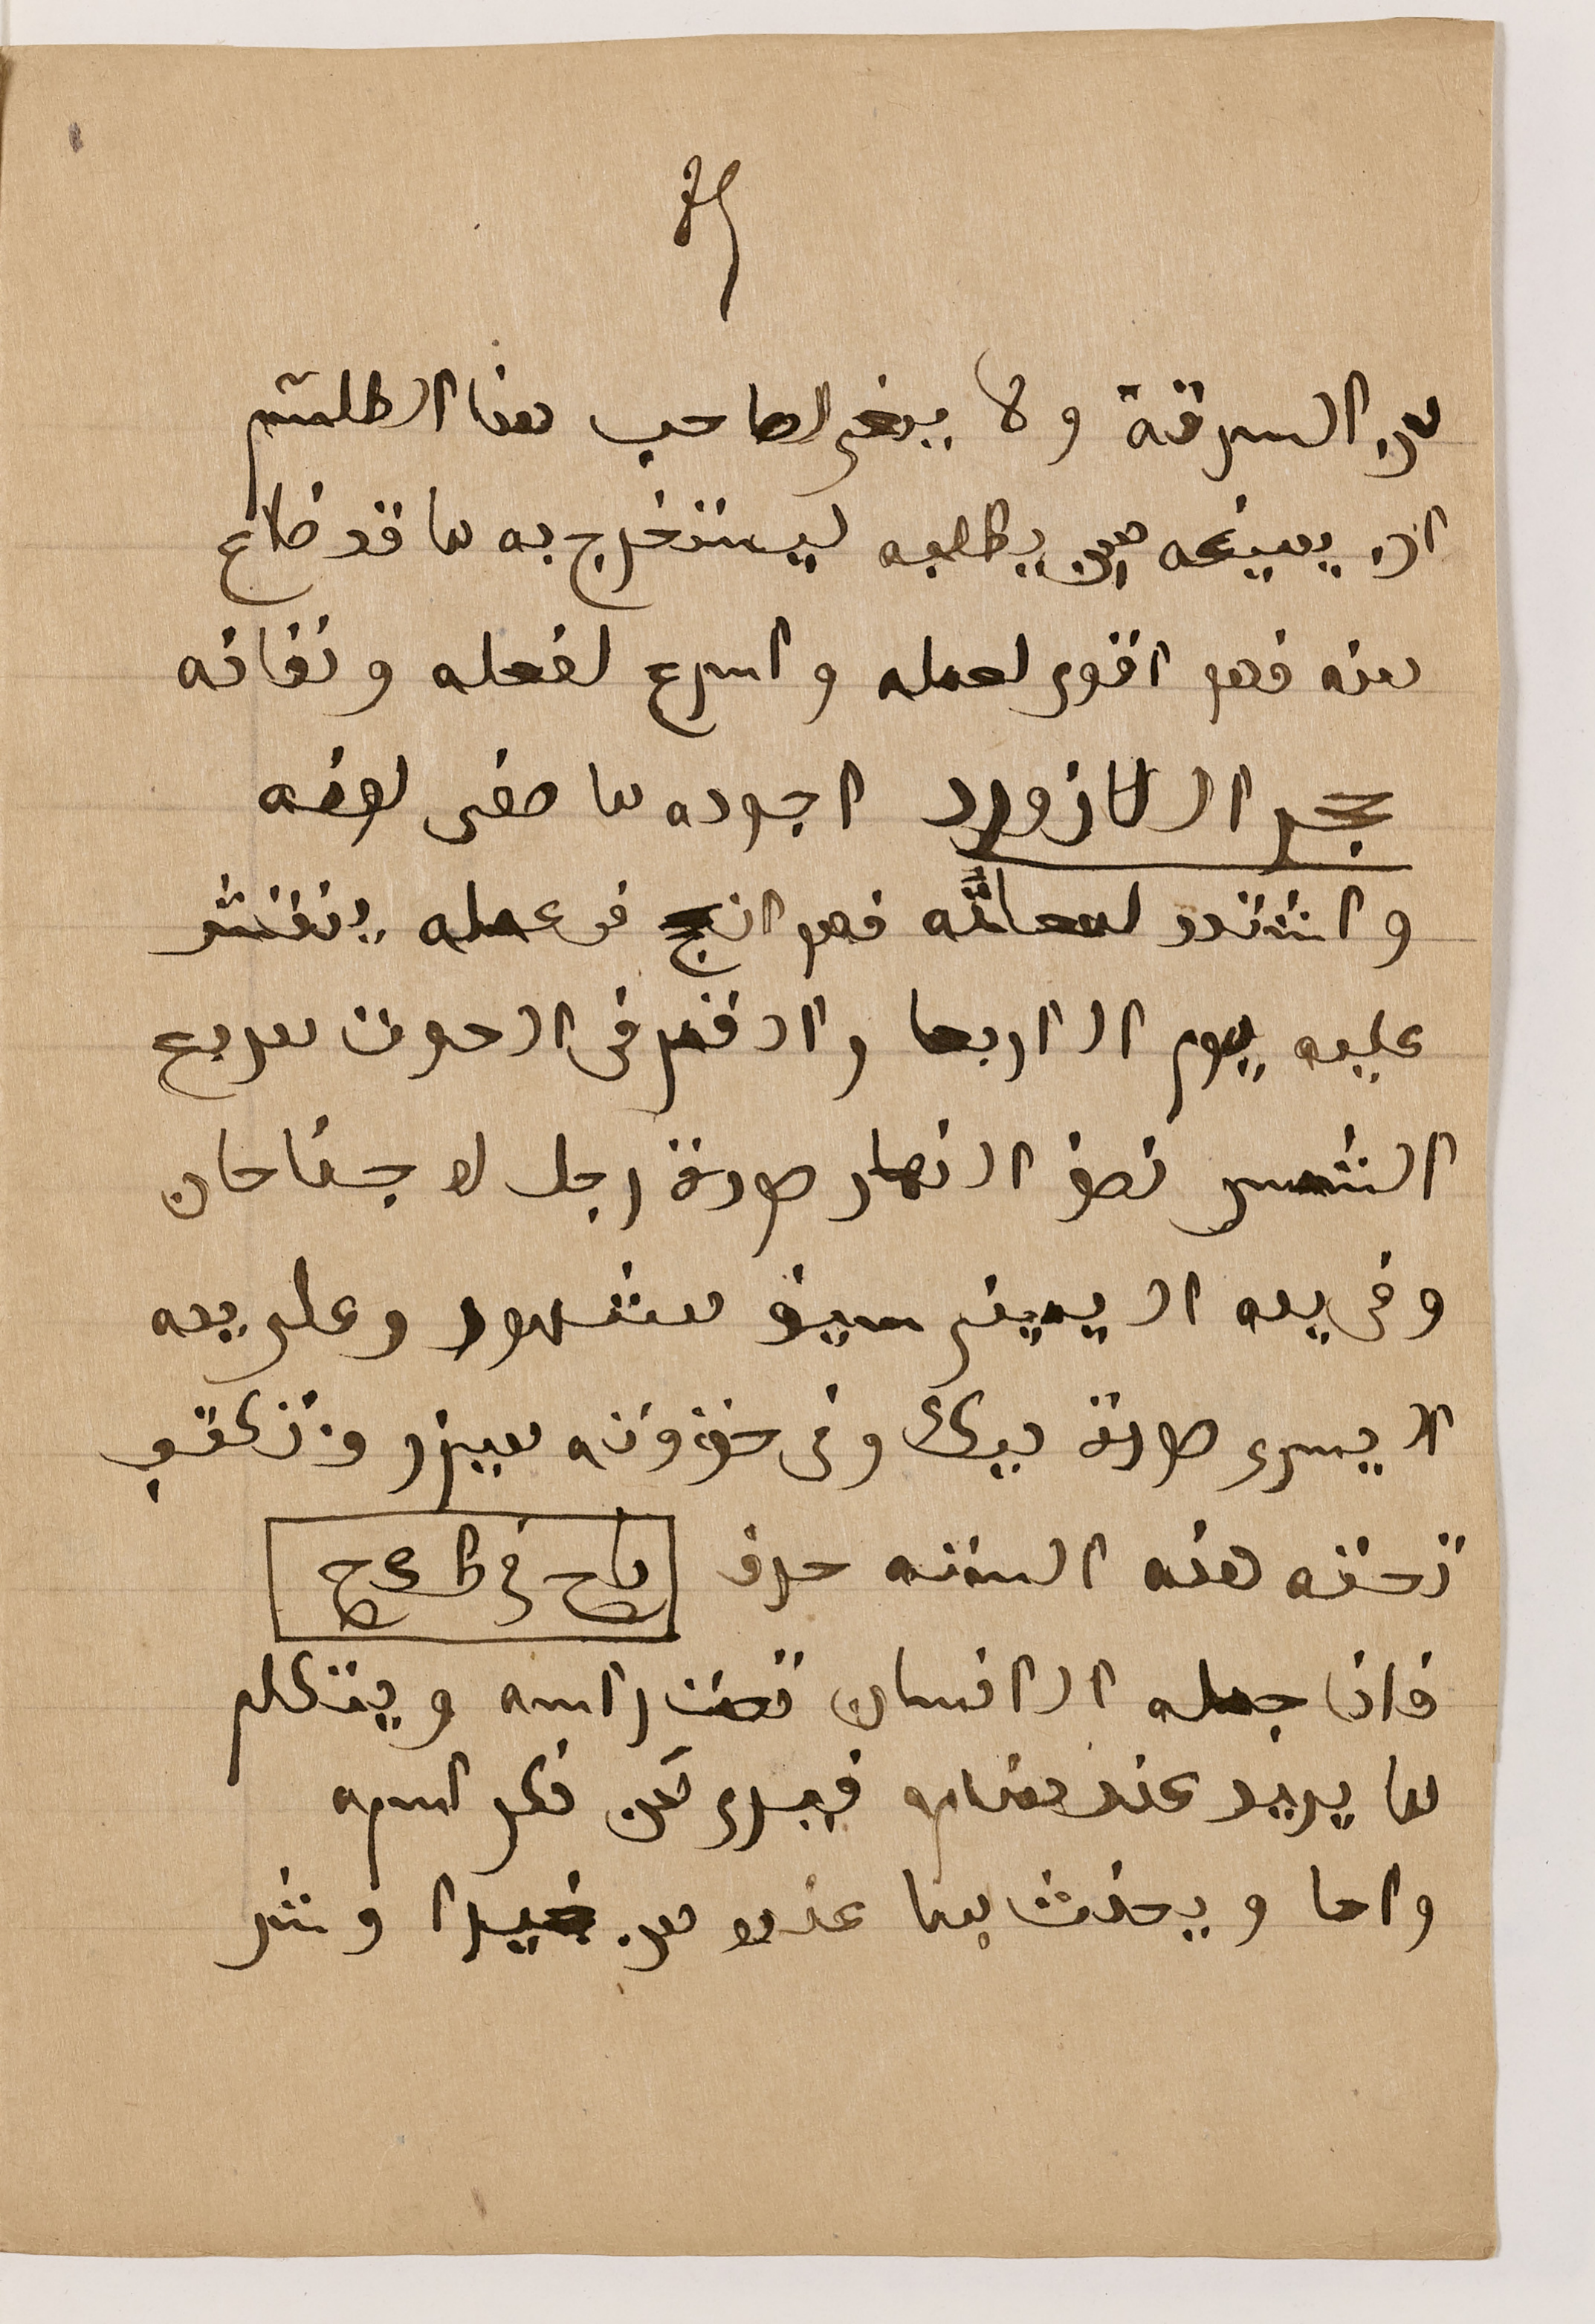 من السرقة ولا ينبغى لصاحب هذا الطلسم
ان يمنعه ممن يطلبه ليستخرج به ما قد ضاع
منه فهو اقوى لعمله واسرع لفعله ونفاذه
حجر اللازورد اجوده ما صفى لونه
واشتدد لمعانه فهو انجح فى عمله ينقش
عليه يوم الاربعا والقمر فى الحوت مربع
الشمس نصف النهار صورة رجل له جناحان
وفى يده اليمنى سيف مشهور وعلى يده
اليسرى صورة ديك وفى وتكتب
تحته هذه الستته حرف
فاذا جعله الانسان تحت راسه ويتكلم
ما يريد عند منامه فيرى من ذكر اسمه
واما ويحدث بما عنده من خيرا وشر